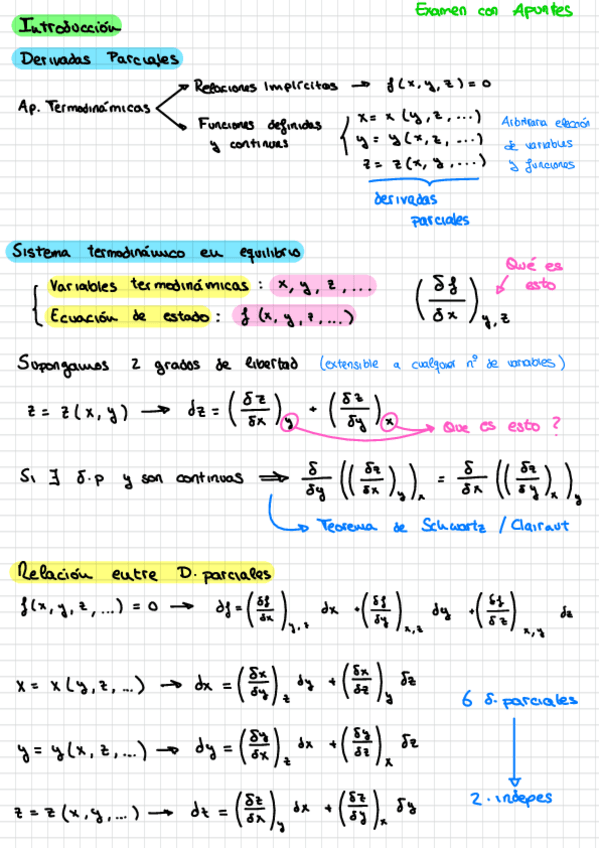 Examen con Apuntes
Introducción
Derivadas Parciales
Ap. Termodinámicas
Relaciones Implícitas → f(x,y,z)=0
Funciones definidas y continuas
x = x(y,z,...)
y = y(x,z,...)
z = z(x,y,...)
Arbitraria elección
de variables
y funciones
derivadas
parciales
Sistema termodinámico en equilibrio
Variables termodinámicas : x, y, z, ...
Ecuación de estado : f(x,y,z,...)
(δf/δx)_y,z
Qué es
esto
Supongamos 2 grados de libertad (extensible a cualquier nº de variables)
z = z(x,y) → dz = (δz/δx)_y + (δz/δy)_x → Que es esto ?
Si ∃ δ.p y son continuas ⇒ δ/δy((δz/δx)_y)_x = δ/δx((δz/δy)_x)_y
Teorema de Schwartz / Clairaut
Relación entre D. parciales
f(x,y,z,...) = 0 → df = (δf/δx)_y,z dx + (δf/δy)_x,z dy + (δf/δz)_x,y dz
x = x(y,z,...) → dx = (δx/δy)_z dy + (δx/δz)_y δz
y = y(x,z,...) → dy = (δy/δx)_z dx + (δy/δz)_x δz
z = z(x,y,...) → dz = (δz/δx)_y dx + (δz/δy)_x δy
6 δ. parciales
2. indepes